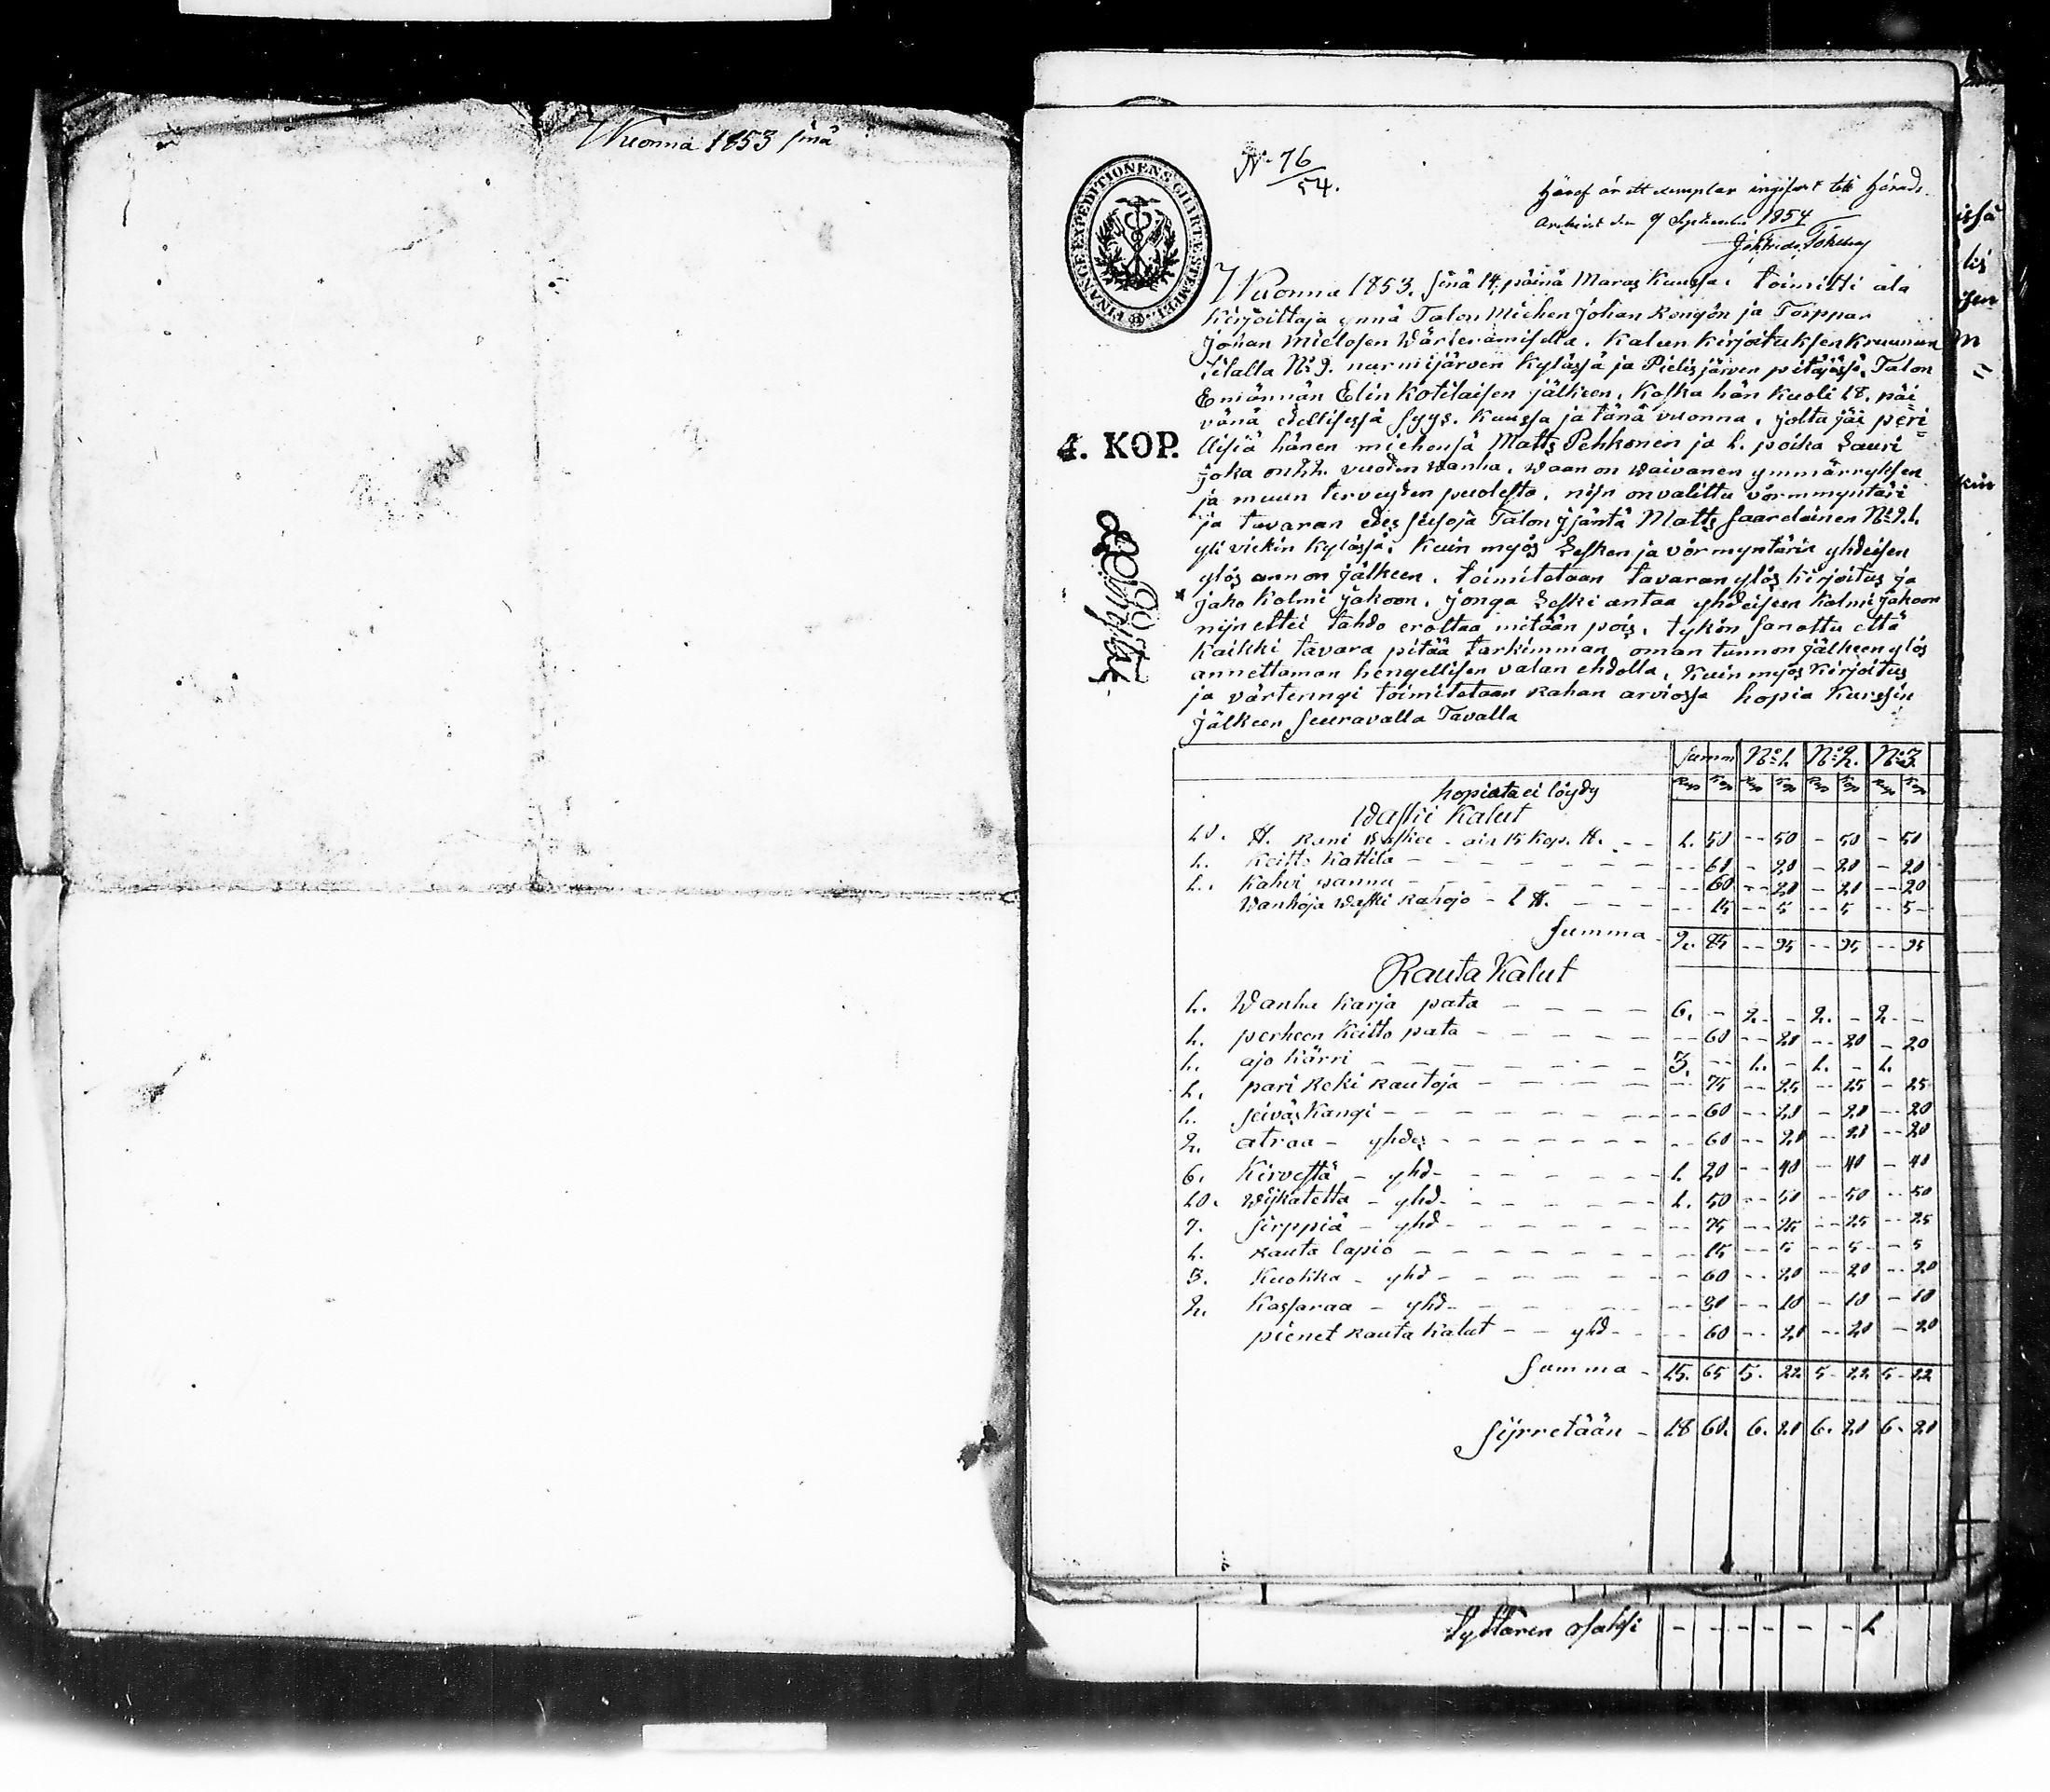 Wuonna 1853 sinä
N. 76/54.
Häraf är ett exemplar ingifvet till Härads
Archivet den 9 September 1854
FINANCE EXPEDITIONENS CHARTE STEMPEL
Wuonna 1853. sinä 14. päinä Maras Kuussa. toimitti ala
kirjoittaja ynnä Talon Miehen Johan Rongön ja Torppar
Johan Mielosen Wärteramisella. Kalun kirjoituksen kruunun
tilalla No 9. nurmijärven kylässä ja Pielisjärven pitäjässä, Talon
Emännän Elin Kotilaisen jälkeen, Koska hän Kuoli 18. päi
vänä edellisessä syys. Kuussa ja tänä vuonna, jolta jäi peri
4. KOP.
llisiä hänen miehensä Matts Pehkonen ja 1. poika Lauri
joka on 22. vuoden Wanha, waan on waivanen ymmärryksen
ja muun terveyden puolesta, nijn on valittu vörmmyntäri
ja tavaran edes seisoja Talon jsäntä Matts Saarelainen No 21.
yli viekin kylässä, Kuin myös Lesken ja vörmyntärin yhdeisen
ylös annon jälkeen, toimitetaan tavaran ylös kirjoitus ja
jako Kolmi jakoon, jonga Leski antaa yhdeiseen Kolmi jakoon
nijn ettei tahdo eroittaa mitään pois, tykön sanottu että
Kaikki tavara pitää tarkimman oman tunnon jälkeen ylös
annettaman hengellisen valan ehdolla, Kuin myös Kirjoitus
ja värteringi toimitetaan rahan arviossa hopia Kurssin
jälkeen seuravalla Tavalla
Summ No 1 No 2. No 3
Rup Kop Rup Kop Rup Kop Rup Kop
hopiata ei löydy
Waski Kalut
10. ℔. Rani Waskee - ain 15 kop. ℔. - - 1. 50 - - 50 - 50 - 50
1. Keitto Kattila - - 60 - 20 - 20 - 20
1. Kahvi pannu - - 60 - - 20 - 20 - - 20
Wanhoja Waski rahojo - 1 ℔. - - 15 - - 5 - - 5 - - 5 -
Summa - 2. 85 - - 95 - - 95 - - 95
Rauta Kalut
1. Wanha Karja pata - - 6. - 2. - 2. - 2 -
1. perheen Keitto pata - - 60 - - 20 - - 20 - 20
1. ajo Kärri - - 3. - - 1. - 1. - 1.
1. pari Reki rautoja - - 75 - - 25 - - 25 - 25
1. seiväs Kangi - - 60 - - 20 - 20 - - 20
2. atraa - yhdes - - 60 - - 20 - - 20 - - 20
6. Kirvestä - yhd - - 1. 20 - - 40 - 40 - 40
10. Wijkatetta - yhd - - 1. 50 - - 50 - - 50 - - 50
7. sirppiä - yhd - - 75 - - 25 - - 25 - - 25
1. rauta lapio - - 15 - - 5 - - 5 - - 5
3. Kuokka - yhd - - 60 - - 20 - - 20 - - 20
2. Kassaraa - yhd - - 30 - - 10 - 10 - 10
pienet rauta Kalut - - yhd - - 60 - - 20 - - 20 - 20
Summa - 15. 65 5. 22 5 - 22 5 - 22
Sijrretään - 18 60. 6. 20 6. 20 6. 20
tyttären osaksi - - - - - - 1